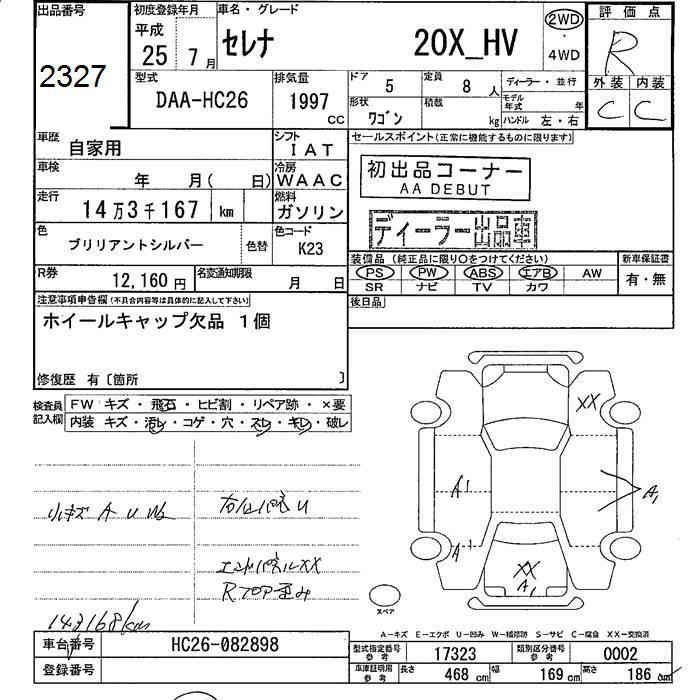 出品番号 初度登録年月 車名・グレード 評価点
2327
平成 25 7月 セレナ 20X_HV 2WD ・ 4WD R
型式 DAA-HC26 排気量 1997 CC
ドア 5 定員 8 人 ディーラー・並行
形状 ワゴン 積載 kg モデル年式 年 ハンドル 左・右
外装 内装
C C
車歴 自家用 シフト IAT セールスポイント(正常に機能するものに限ります)
車検 年 月( 日) 冷房 WAAC 初出品コーナー
AA DEBUT
走行 14万3千167 km 燃料 ガソリン ディーラー出品車
色 ブリリアントシルバー 色替 色コード K23
装備品(純正品に限り○をつけてください) 新車保証書
PS PW ABS エアB AW 有・無
SR ナビ TV カワ
R券 12,160円 名変通知期限 月 日
後日品
注意事項申告欄(不具合内容等は具体的に記入して下さい)
ホイールキャップ欠品 1個
修復歴 有〔箇所 〕
検査員記入欄 FW キズ・飛石・ヒビ割・リペア跡・×要
内装 キズ・汚レ・コゲ・穴・スレ・キレ・破レ
小キズ A U W2
エンドパネルXX
143168km
XX
A1
A1
A1
XX
A1
スペア
A-キズ E-エクボ U-凹み W-補修跡 S-サビ C-腐食 XX-交換済
車台番号 HC26-082898 型式指定番号 参考 17323 類別区分番号 参考 0002
登録番号 車庫証明用 参考 長さ 468 cm 幅 169 cm 高さ 186 cm